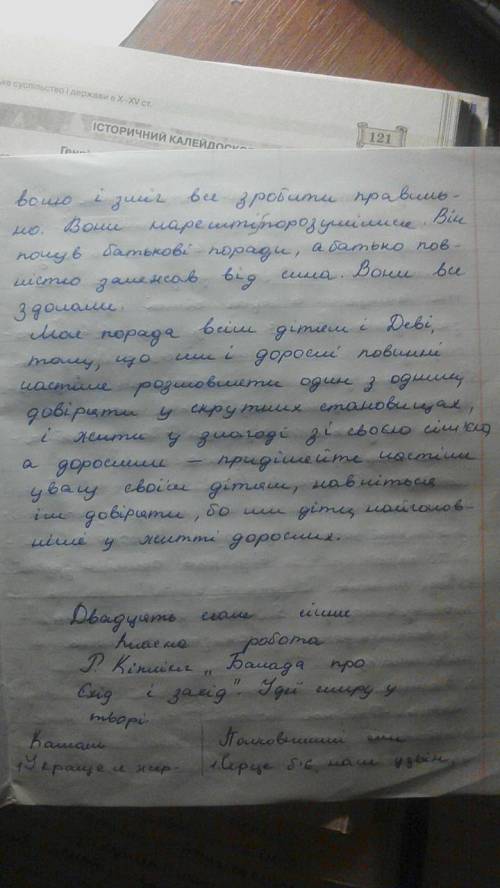 ке суспільство і держави в X–XV ст.
ІСТОРИЧНИЙ КАЛЕЙДОСКО
121
Генрі
волю і зміг все зробити правиль-
но. Вони нарешті порозумілися. Він
почув батькові поради, а батько пов-
ністю залежав від сина. Вони все
здолали.
Моя порада всім дітям і Деві,
тому, що ми і дорослі повинні
частіше розмовляти один з одним,
довіряти у скрутних становищах,
і жити у злагоді зі своєю сім'єю,
а дорослим – приділяйте частіше
увагу своїм дітям, навчіться
їм довіряти, бо ми діти, найголов-
ніше у житті дорослих.
Двадцять сьоме січня
Класна робота
Р. Кіплінг „Балада про
Схід і захід". Ідеї миру у
творі.
Камаль
Полковницький син
1) Украще жир-
1) Серце б'є, наш дзвін,